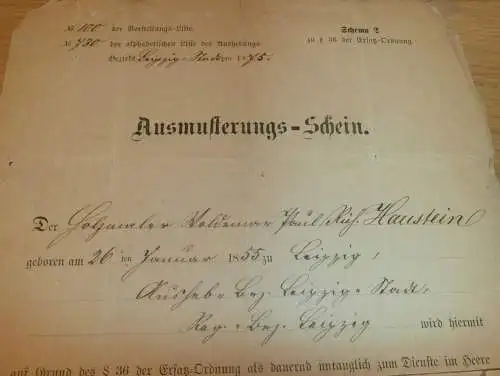 № 100 der Vorstellungs-Liste.
№ 730 der alphabetischen Liste des Aushebungs-
Bezirks Leipzig-Stadt pro 1875.
Schema 2
zu § 36 der Ersatz-Ordnung.
Ausmusterungs-Schein.
Der Holzmaler Woldemar Paul Rich. Haustein
geboren am 26ten Januar 1855 zu Leipzig,
Ausheb.-Bez. Leipzig-Stadt,
Reg.-Bez. Leipzig wird hiermit
auf Grund des § 36 der Ersatz-Ordnung als dauernd untauglich zum Dienste im Heere